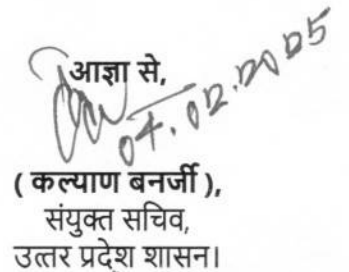 आज्ञा से,
04.02.2025
( कल्याण बनर्जी ),
संयुक्त सचिव,
उत्तर प्रदेश शासन।